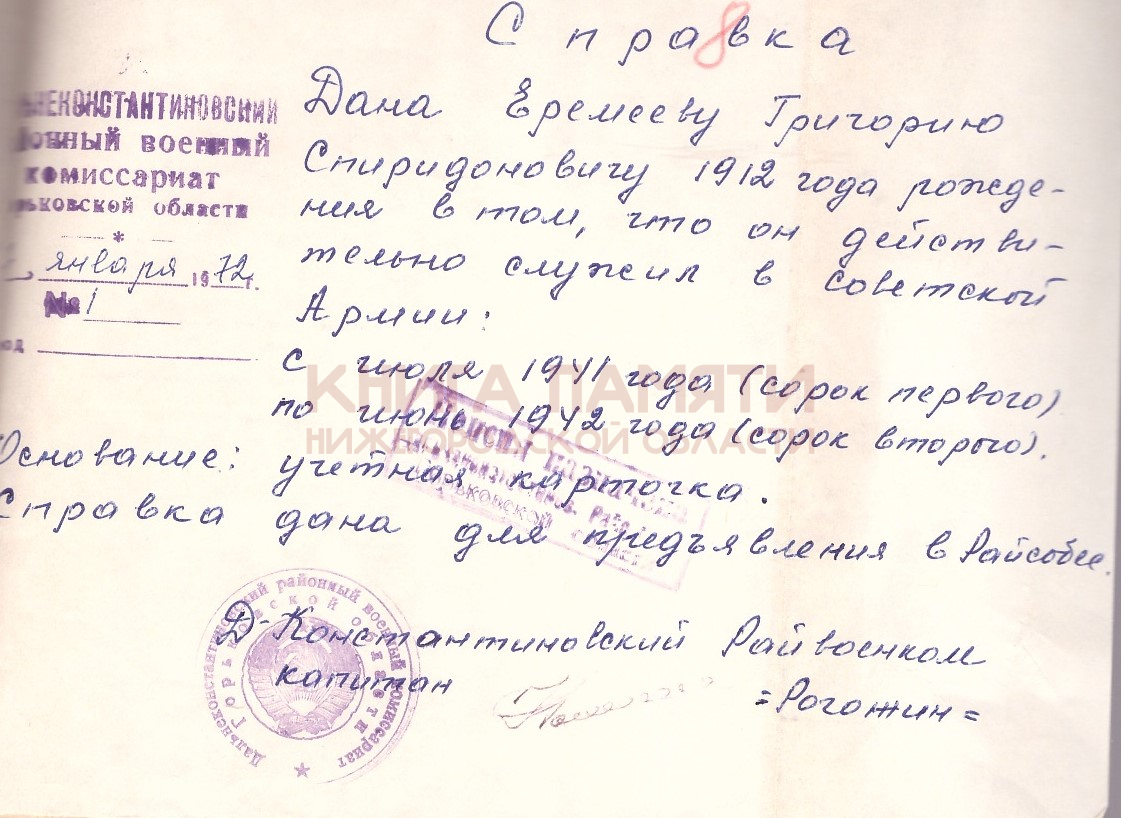 Справка
8
НЕКОНСТАНТИНОВСКИЙ
онный военный
комиссариат
рьковской области
января 1972 г.
№ 1
Дана Еремееву Григорию
Спиридоновичу 1912 года рожде-
ния в том, что он действи-
тельно служил в советской
Армии:
с июля 1941 года (сорок первого)
по июнь 1942 года (сорок второго).
КНИГА ПАМЯТИ
НИЖЕГОРОДСКОЙ ОБЛАСТИ
Основание: учетная карточка.
Справка дана для предъявления в Райсобес.
Д-Константиновский Райвоенком
капитан =Рогожин=
Дальнеконстантиновский районный военный комиссариат
Горьковской области